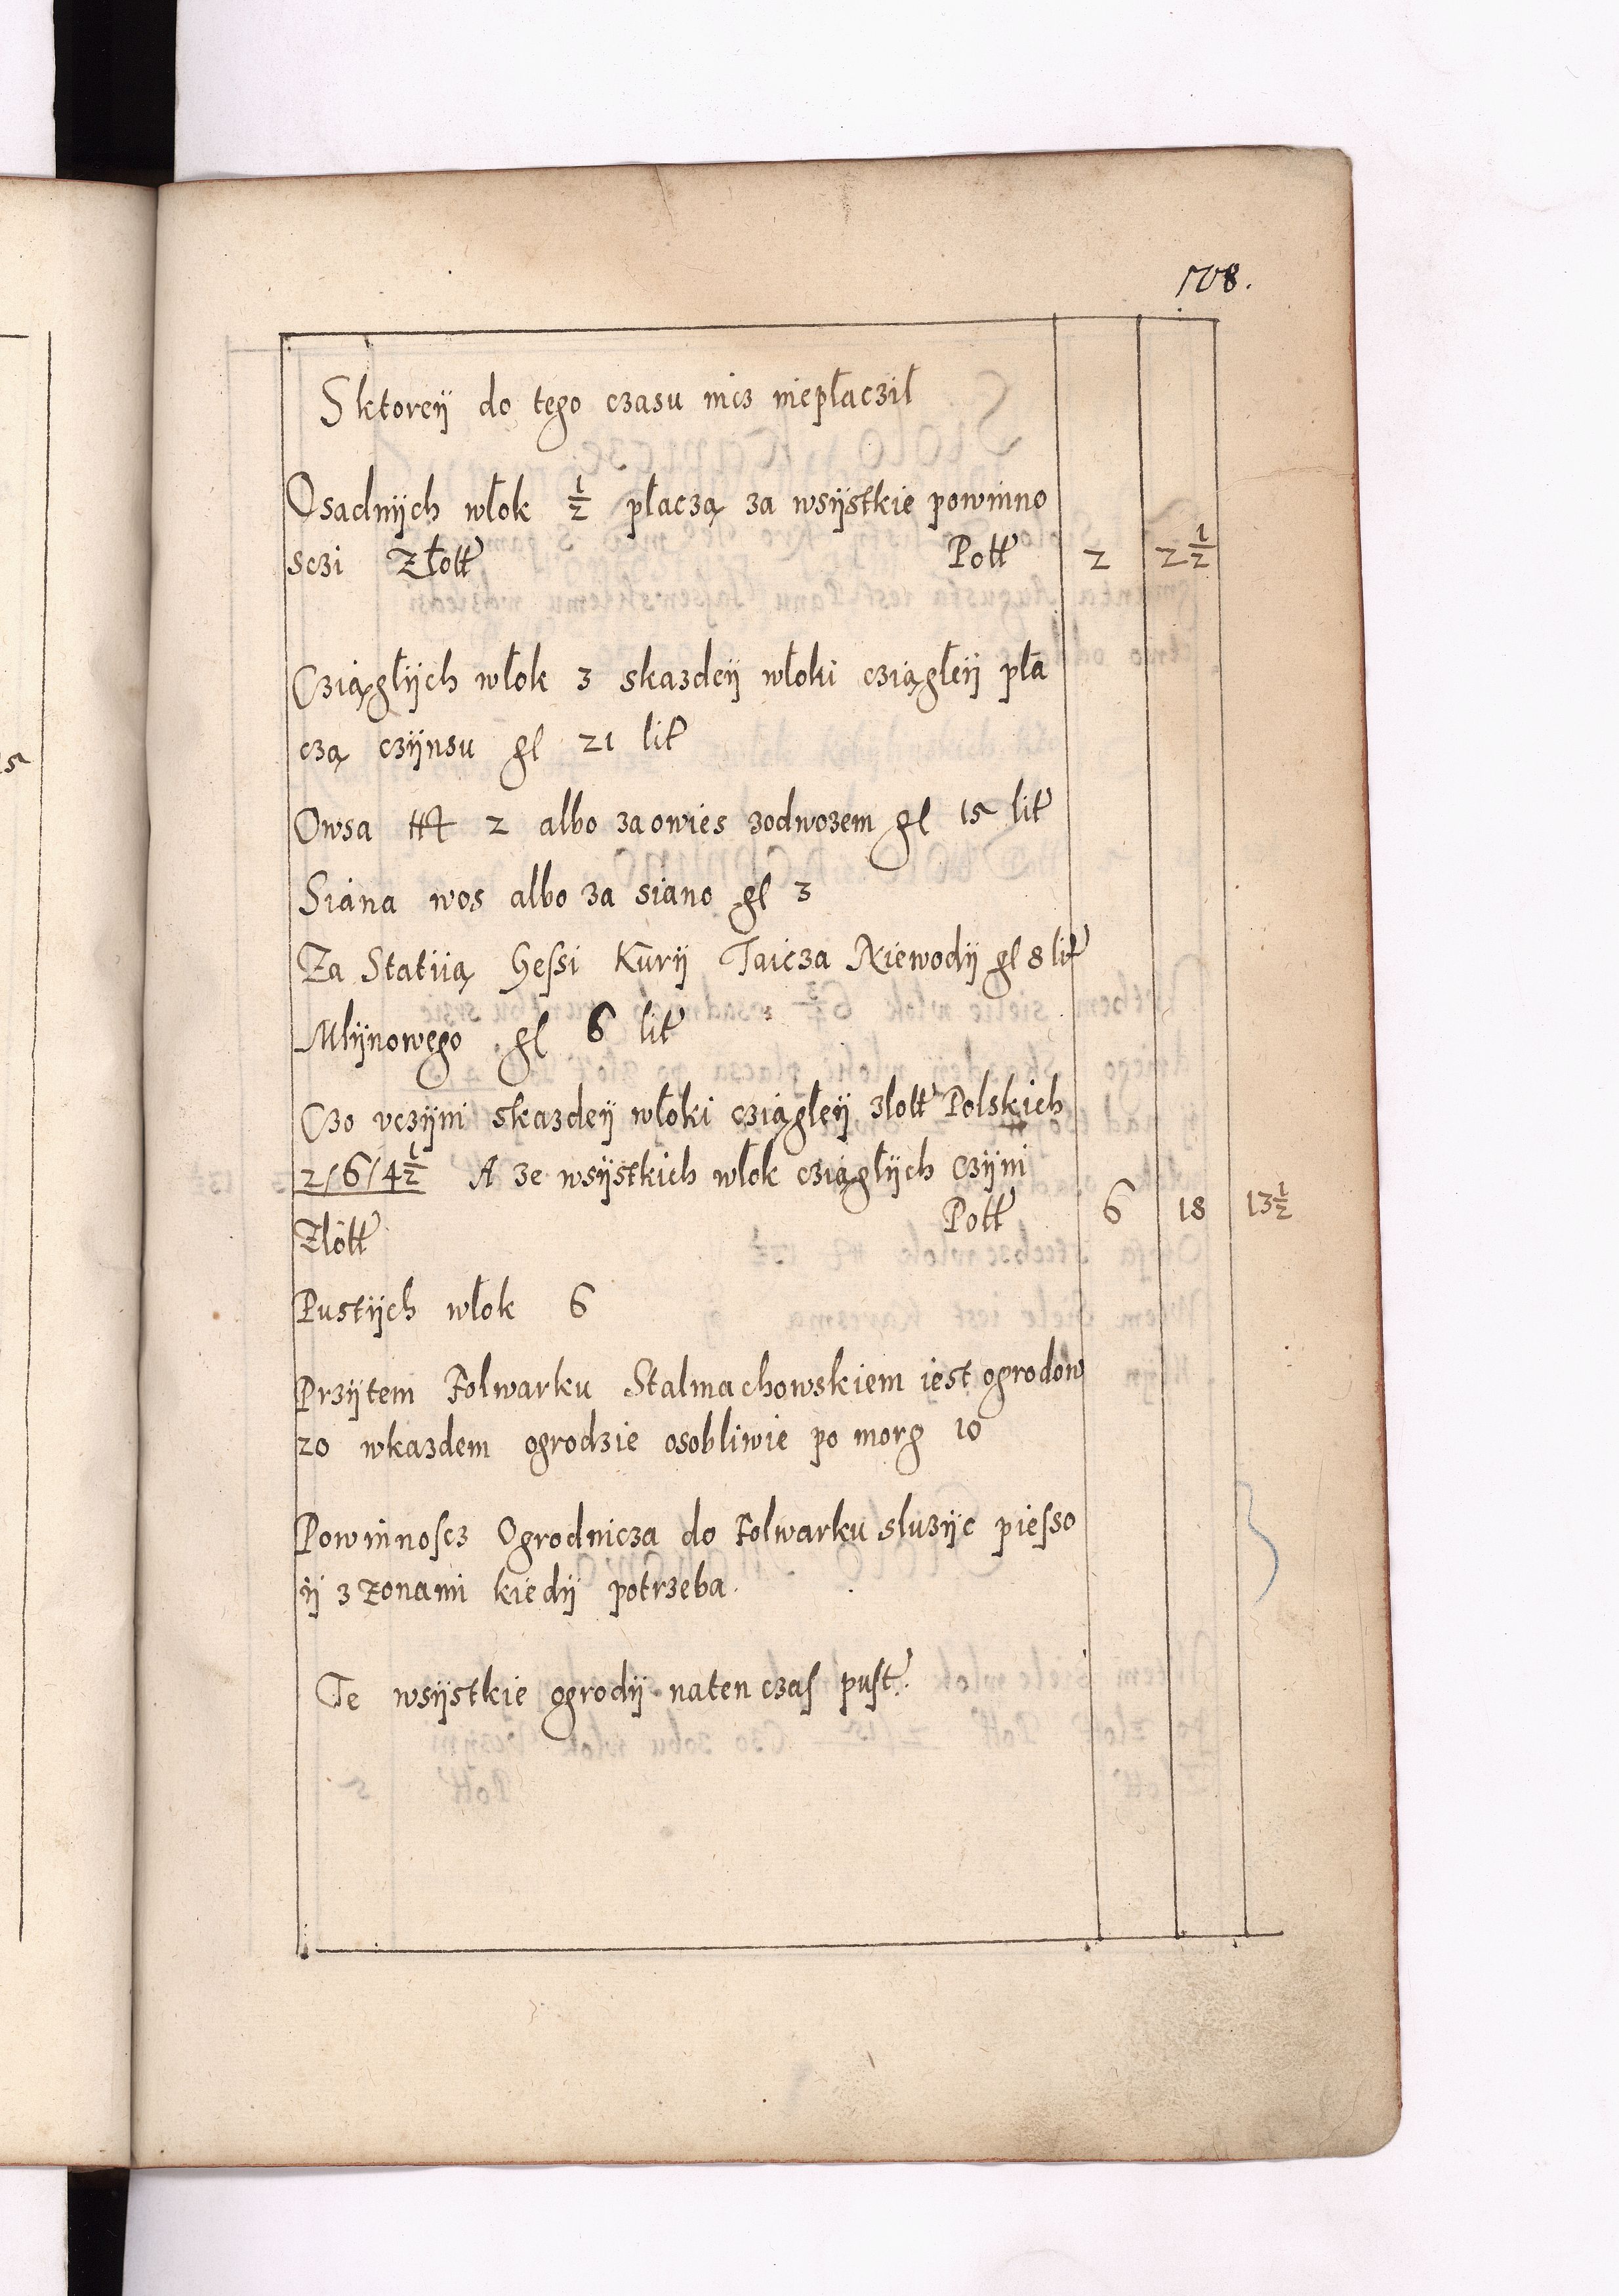 108.
Sktoreÿ do tego czasu nicz niepłacził
Osadnÿch włok 1/2 płaczą za wsÿstkie powinno
sczi Złott Poll 2 2 1/2
Cziągłÿch włok 3 skazdeÿ włoki cziągłeÿ pła
czą czÿnsu gl 21 lit
Owsa 2 albo za owies zodwozem gl 15 lit
Siana wos albo za siano gl 3
Za Statiią Gęssi Kurÿ Taicza Niewodÿ gl 8 lit
Młÿnowego gl 6 lit
Czo vczÿni skazdeÿ włoki cziągłeÿ złott Polskich
2/6/4 1/2 A ze wsÿstkich włok cziągłÿch czÿni
Złott Poll 6 18 13 1/2
Pustÿch włok 6
Przÿtem Folwarku Stalmachowskiem iest ogrodow
20 wkazdem ogrodzie osobliwie po morg 10
Powinnoscz Ogrodnicza do Folwarku służÿc piesso
ÿ z zonami kiedÿ potrzeba.
Te wsÿstkie ogrodÿ naten czas pust.